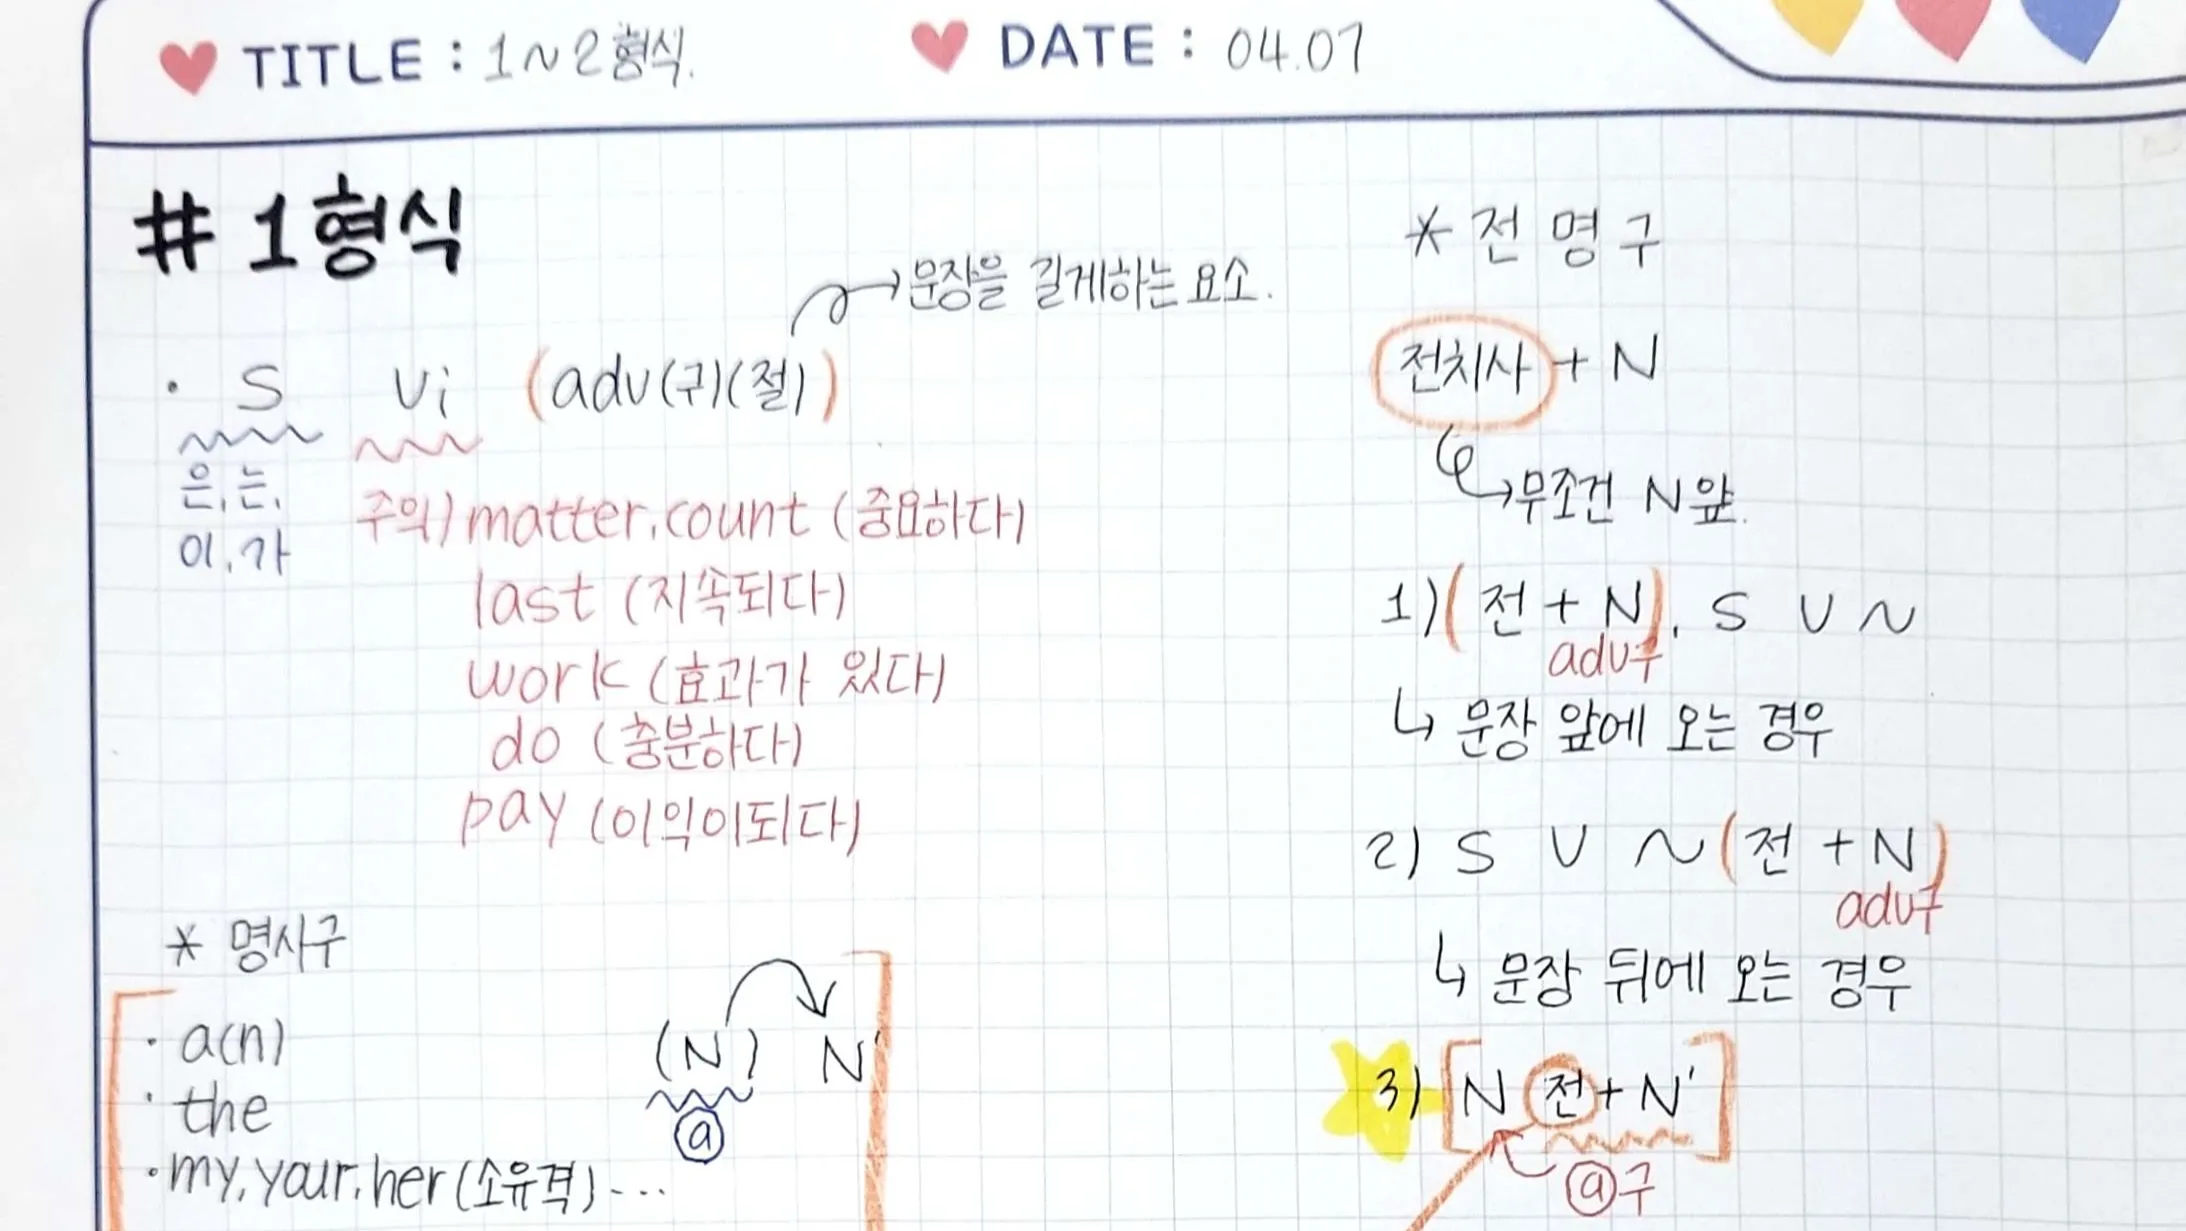 TITLE : 1~2형식.
DATE : 04.07
# 1형식
→문장을 길게하는 요소.
· S Vi (adv(구)(절))
은, 는,
이, 가
주의) matter, count (중요하다)
last (지속되다)
work (효과가 있다)
do (충분하다)
pay (이익이되다)
* 명사구
· a(n)
(N) N
· the
ⓐ
· my, your, her (소유격) ...
* 전명구
전치사 + N
↳무조건 N앞.
1) (전 + N), S V ~
adv구
↳ 문장 앞에 오는 경우
2) S V ~ (전 + N)
adv구
↳ 문장 뒤에 오는 경우
3) [N 전 + N']
ⓐ구